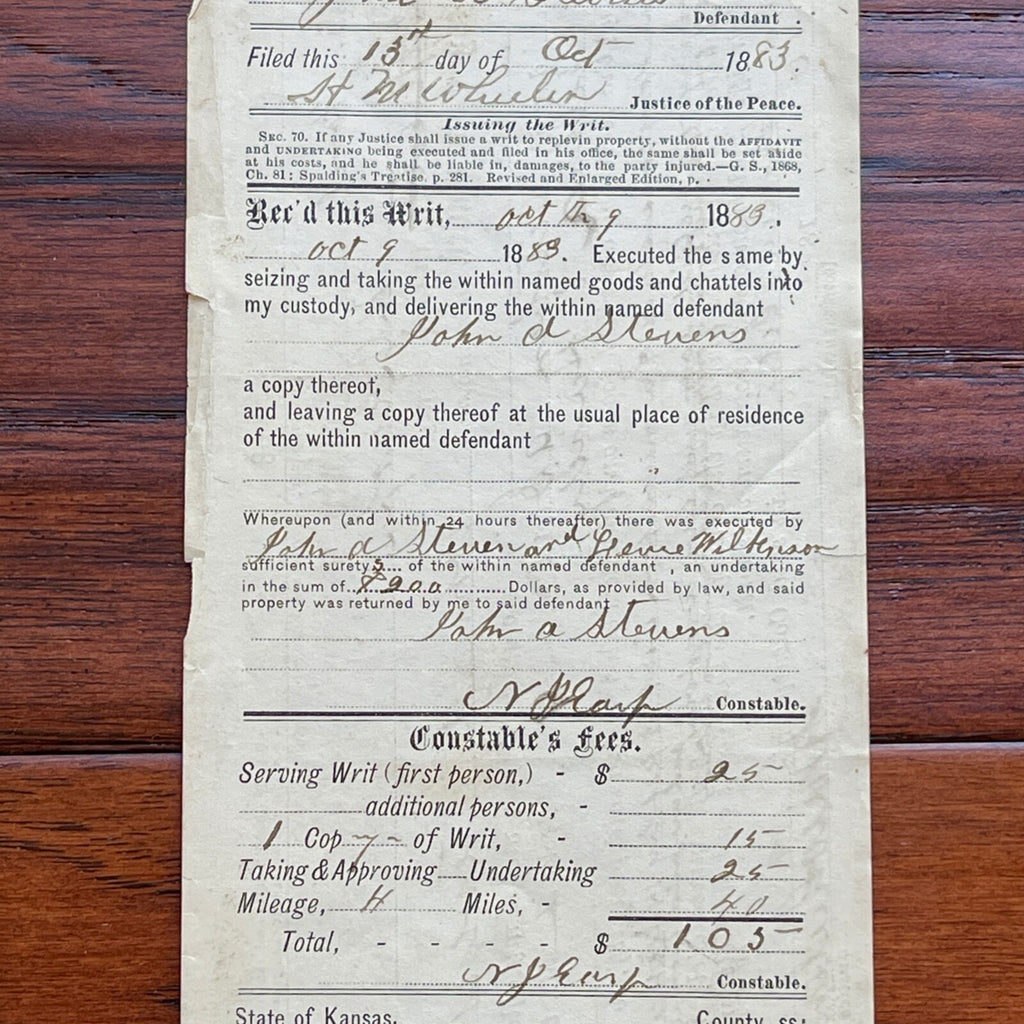 Defendant .
Filed this 13th day of Oct 1883.
H M Wheeler Justice of the Peace.
Issuing the Writ.
SEC. 70. If any Justice shall issue a writ to replevin property, without the AFFIDAVIT
and UNDERTAKING being executed and filed in his office, the same shall be set aside
at his costs, and he shall be liable in, damages, to the party injured.—G. S., 1868,
Ch. 81; Spalding's Treatise, p. 281. Revised and Enlarged Edition, p. .
Rec'd this Writ, oct 9 1883.
oct 9 1883. Executed the same by
seizing and taking the within named goods and chattels into
my custody, and delivering the within named defendant
John A Stevens
a copy thereof,
and leaving a copy thereof at the usual place of residence
of the within named defendant
Whereupon (and within 24 hours thereafter) there was executed by
John A Steven and Wilkinson
sufficient surety s of the within named defendant , an undertaking
in the sum of $200 Dollars, as provided by law, and said
property was returned by me to said defendant
John A Stevens
N J Earp Constable.
Constable's Fees.
Serving Writ (first person,) - $ 25
additional persons, -
1 Cop y - of Writ, - 15
Taking & Approving Undertaking 25
Mileage, 4 Miles, - 40
Total, - - - - $ 1 05
N J Earp Constable.
State of Kansas, County, ss: